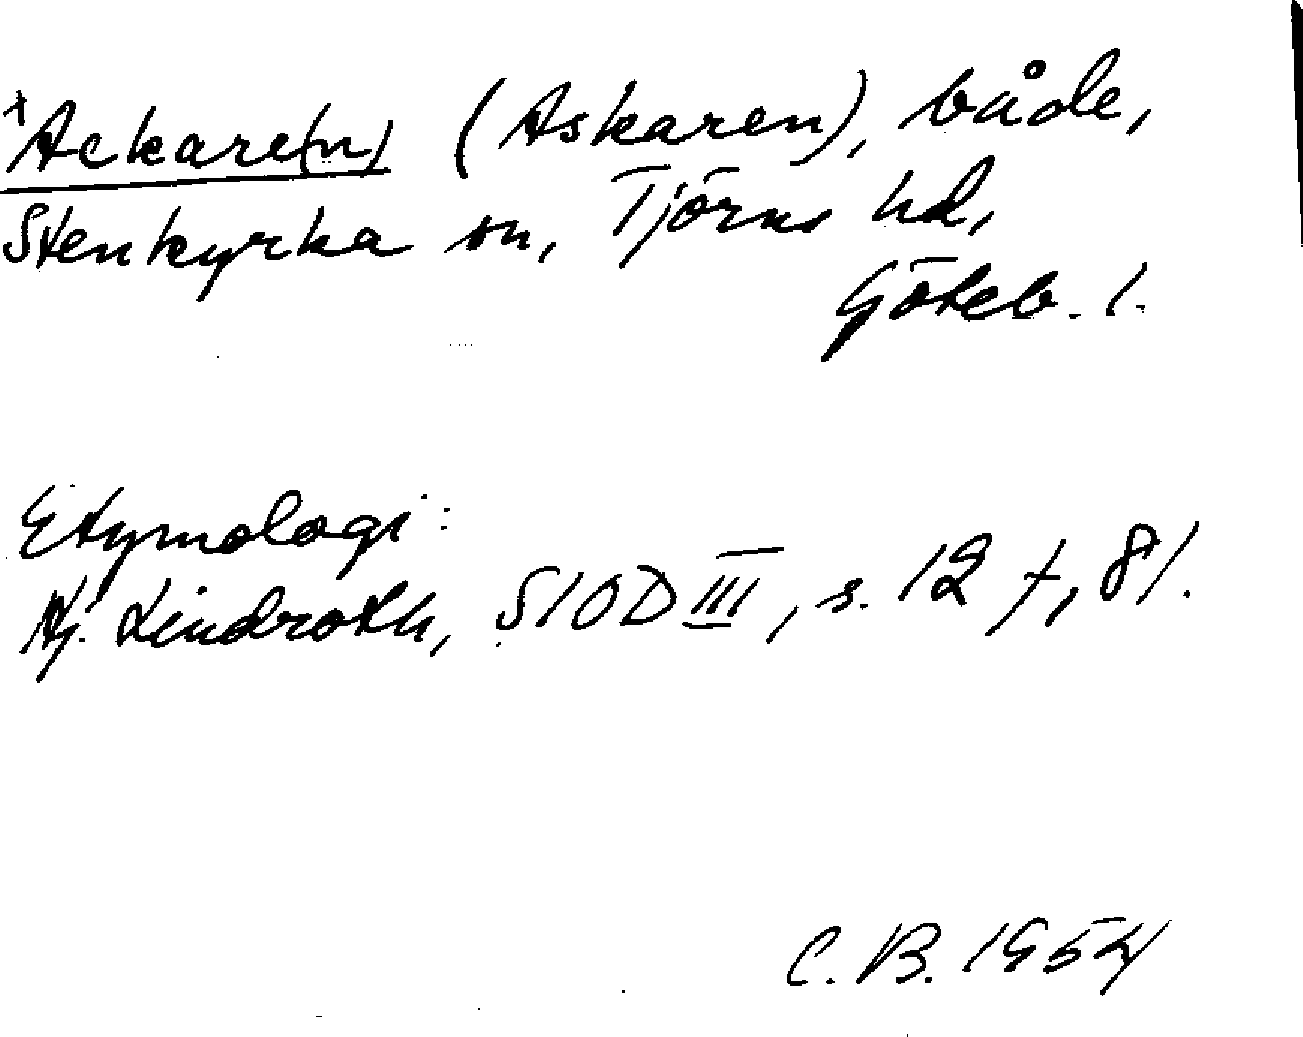 +Ackare(n) (Askaren), både,
Stenkyrka sn, Tjörns hd,
Göteb. l.
Etymologi:
Hj. Lindroth, SIOD III, s. 12 f, 81.
C.B. 1954